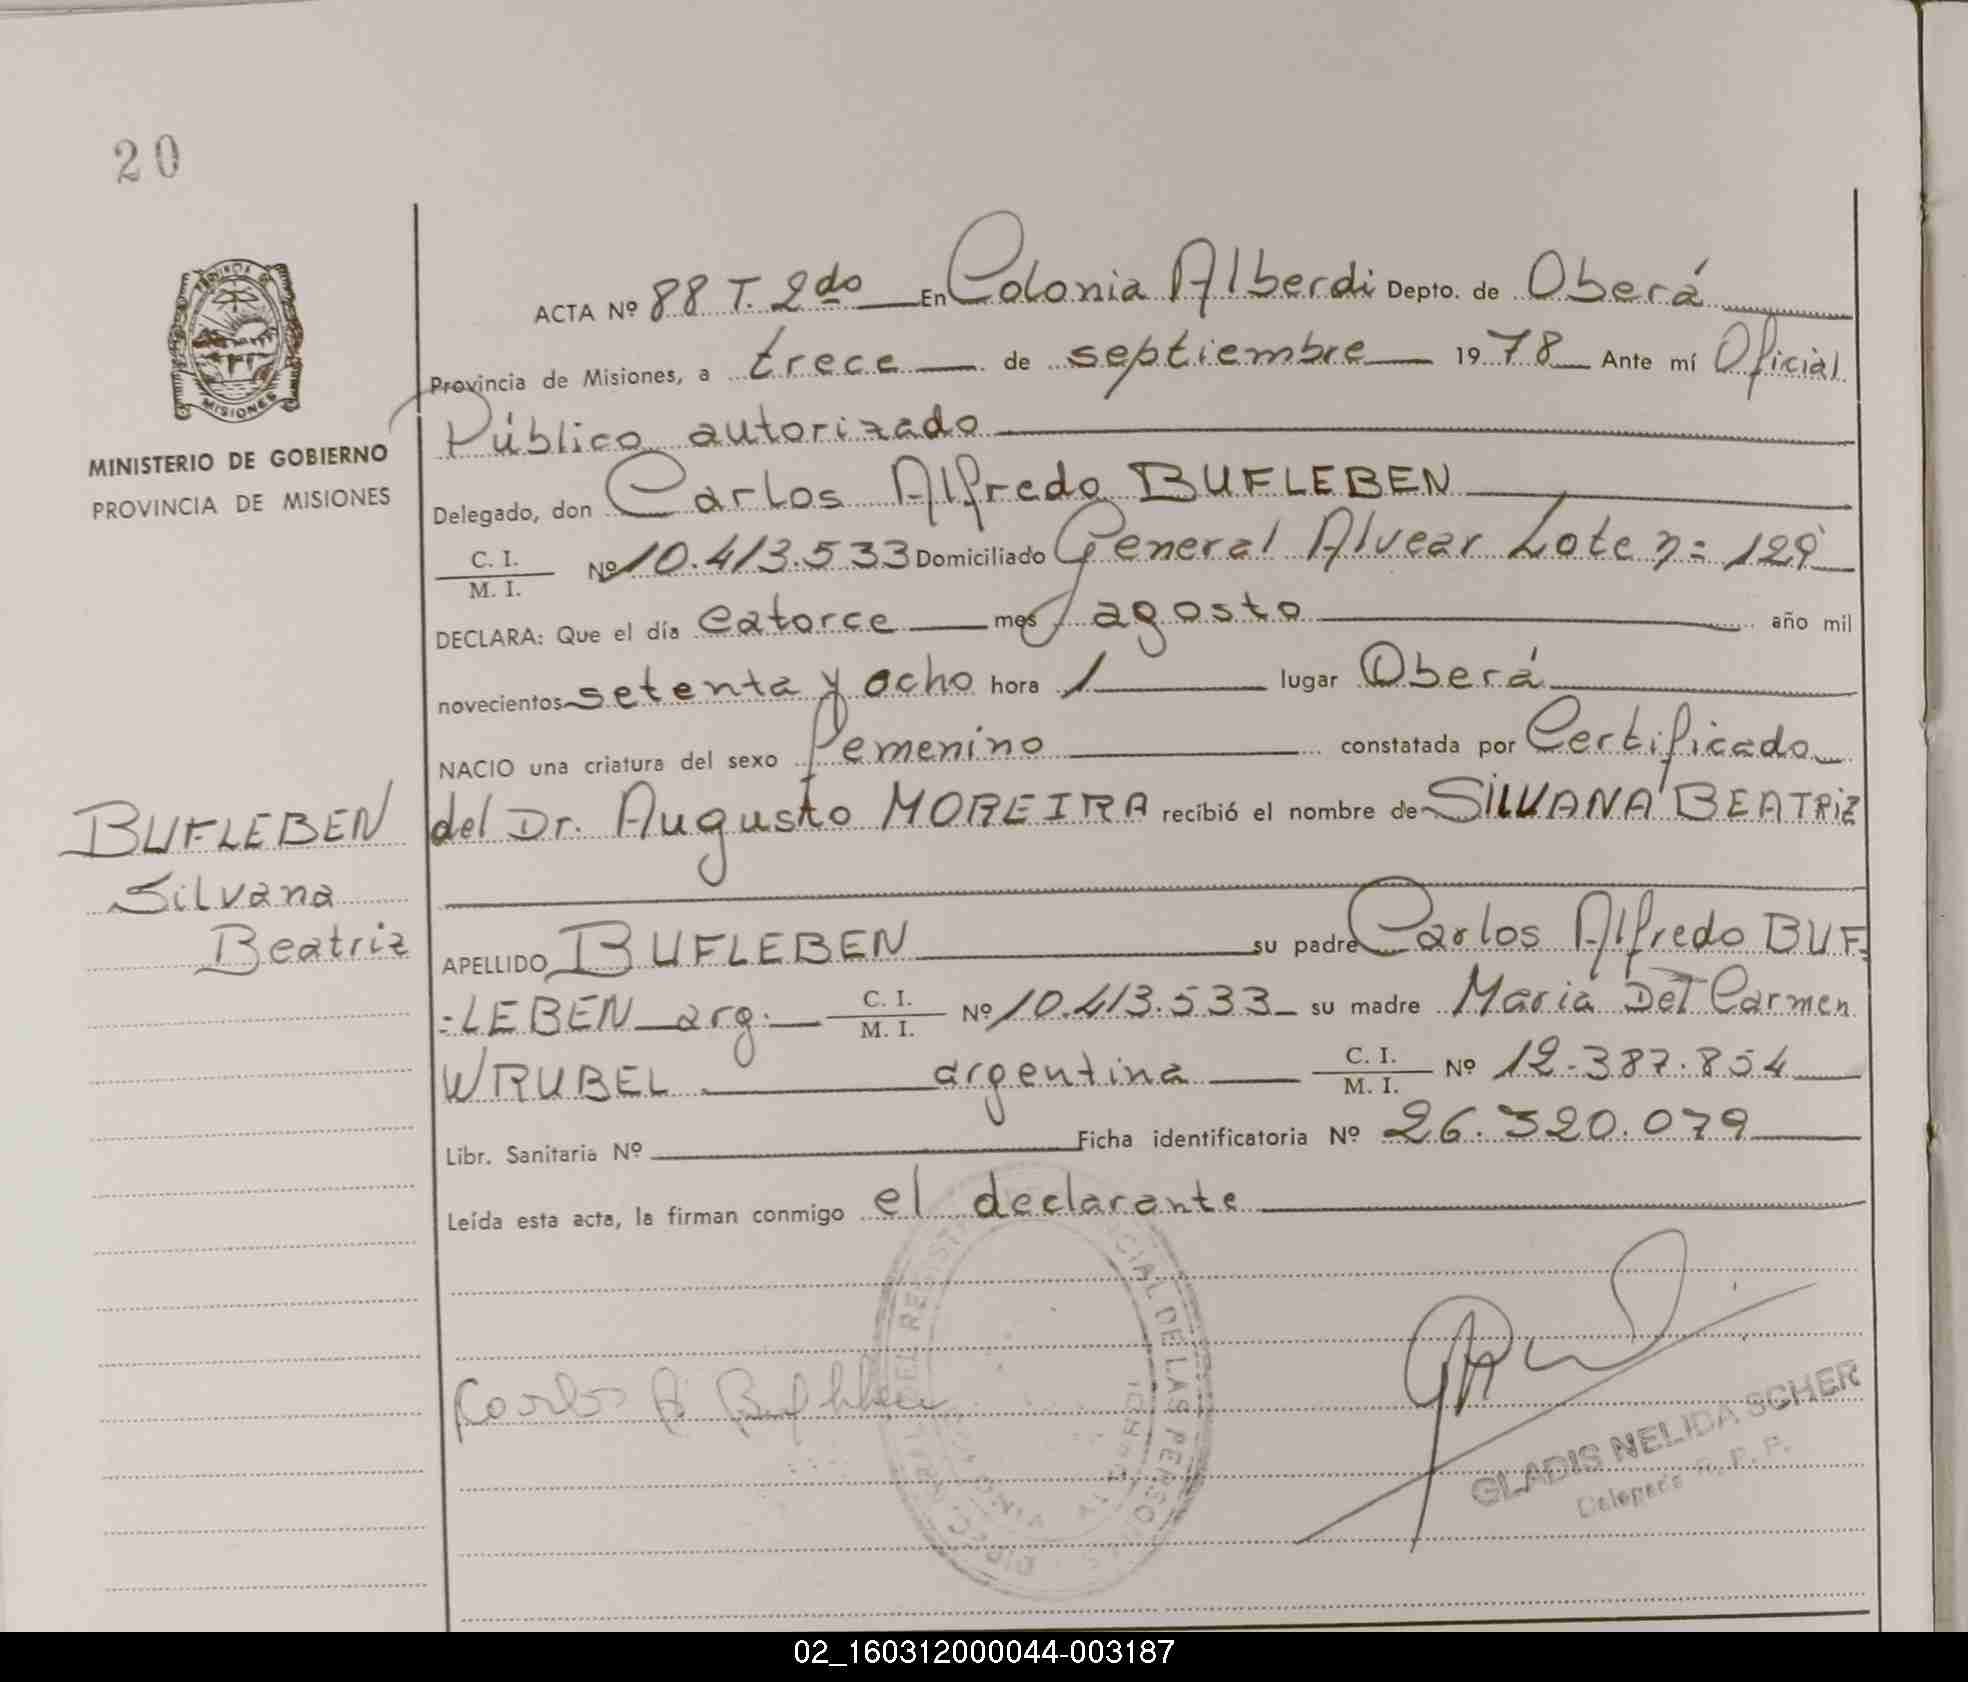 20
PROVINCIA DE
MISIONES
MINISTERIO DE GOBIERNO
PROVINCIA DE MISIONES
ACTA Nº 88 T. 2do En Colonia Alberdi Depto. de Oberá
Provincia de Misiones, a trece de septiembre 1978 Ante mí Oficial
Público autorizado
Delegado, don Carlos Alfredo BUFLEBEN
C. I.
M. I. Nº 10.413.533 Domiciliado General Alvear Lote nº 129
DECLARA: Que el día catorce mes agosto año mil
novecientos setenta y ocho hora 1 lugar Oberá
NACIO una criatura del sexo femenino constatada por Certificado
del Dr. Augusto MOREIRA recibió el nombre de SILVANA BEATRIZ
BUFLEBEN
Silvana
Beatriz
APELLIDO BUFLEBEN su padre Carlos Alfredo BUF=
=LEBEN arg. C. I. M. I. Nº 10.413.533 su madre Maria Del Carmen
WRUBEL argentina C. I. M. I. Nº 12.387.854
Libr. Sanitaria Nº Ficha identificatoria Nº 26.320.079
Leída esta acta, la firman conmigo el declarante
Carlos A. Bufleben
GLADIS NELIDA SCHER
Delegada R. P. P.
02_160312000044-003187